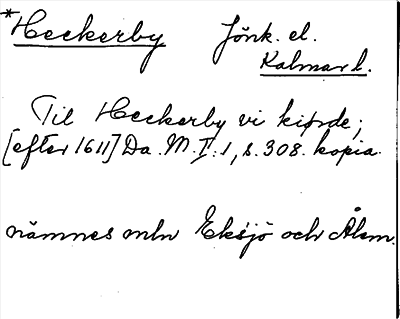 *Heckerby Jönk. el.
Kalmar l.
Til Heckerby vi kiørde;
[efter 1611] Da. M. I: 1, s. 308. kopia.
nämnes mln Eksjö och Ålem.